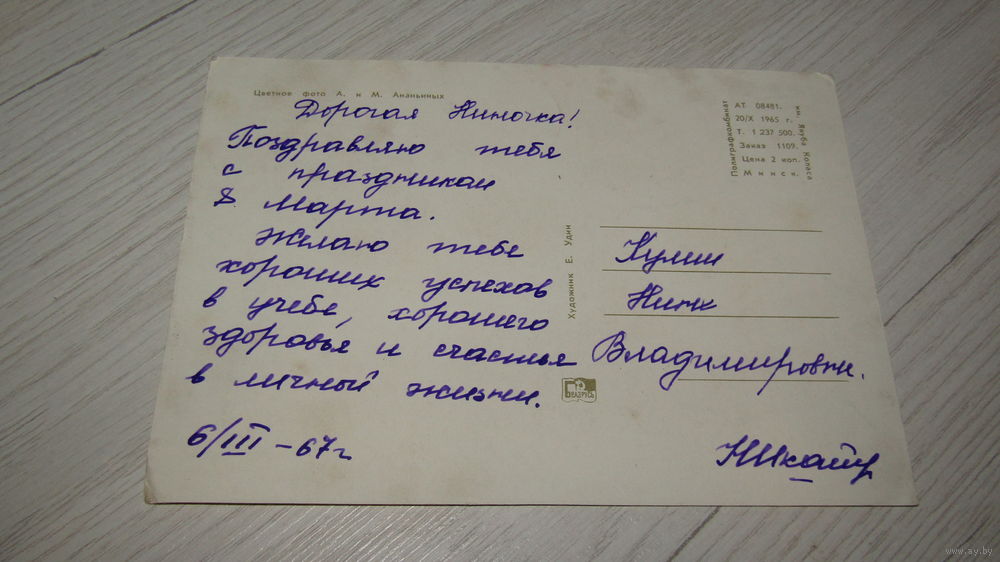 Цветное фото А. и М. Ананьиных
Дорогая Ниночка!
Поздравляю тебя
с праздником
8 Марта.
Желаю тебе
хороших успехов
в учебе, хорошего
здоровья и счастья
в личной жизни.
6/III – 67 г
Художник Е. Удин
БЕЛАРУСЬ
Полиграфкомбинат
им. Якуба Коласа
АТ 08481.
20/X 1965 г.
Т. 1 237 500.
Заказ 1109.
Цена 2 коп.
Минск.
Нине
Владимировны.
www.ay.by